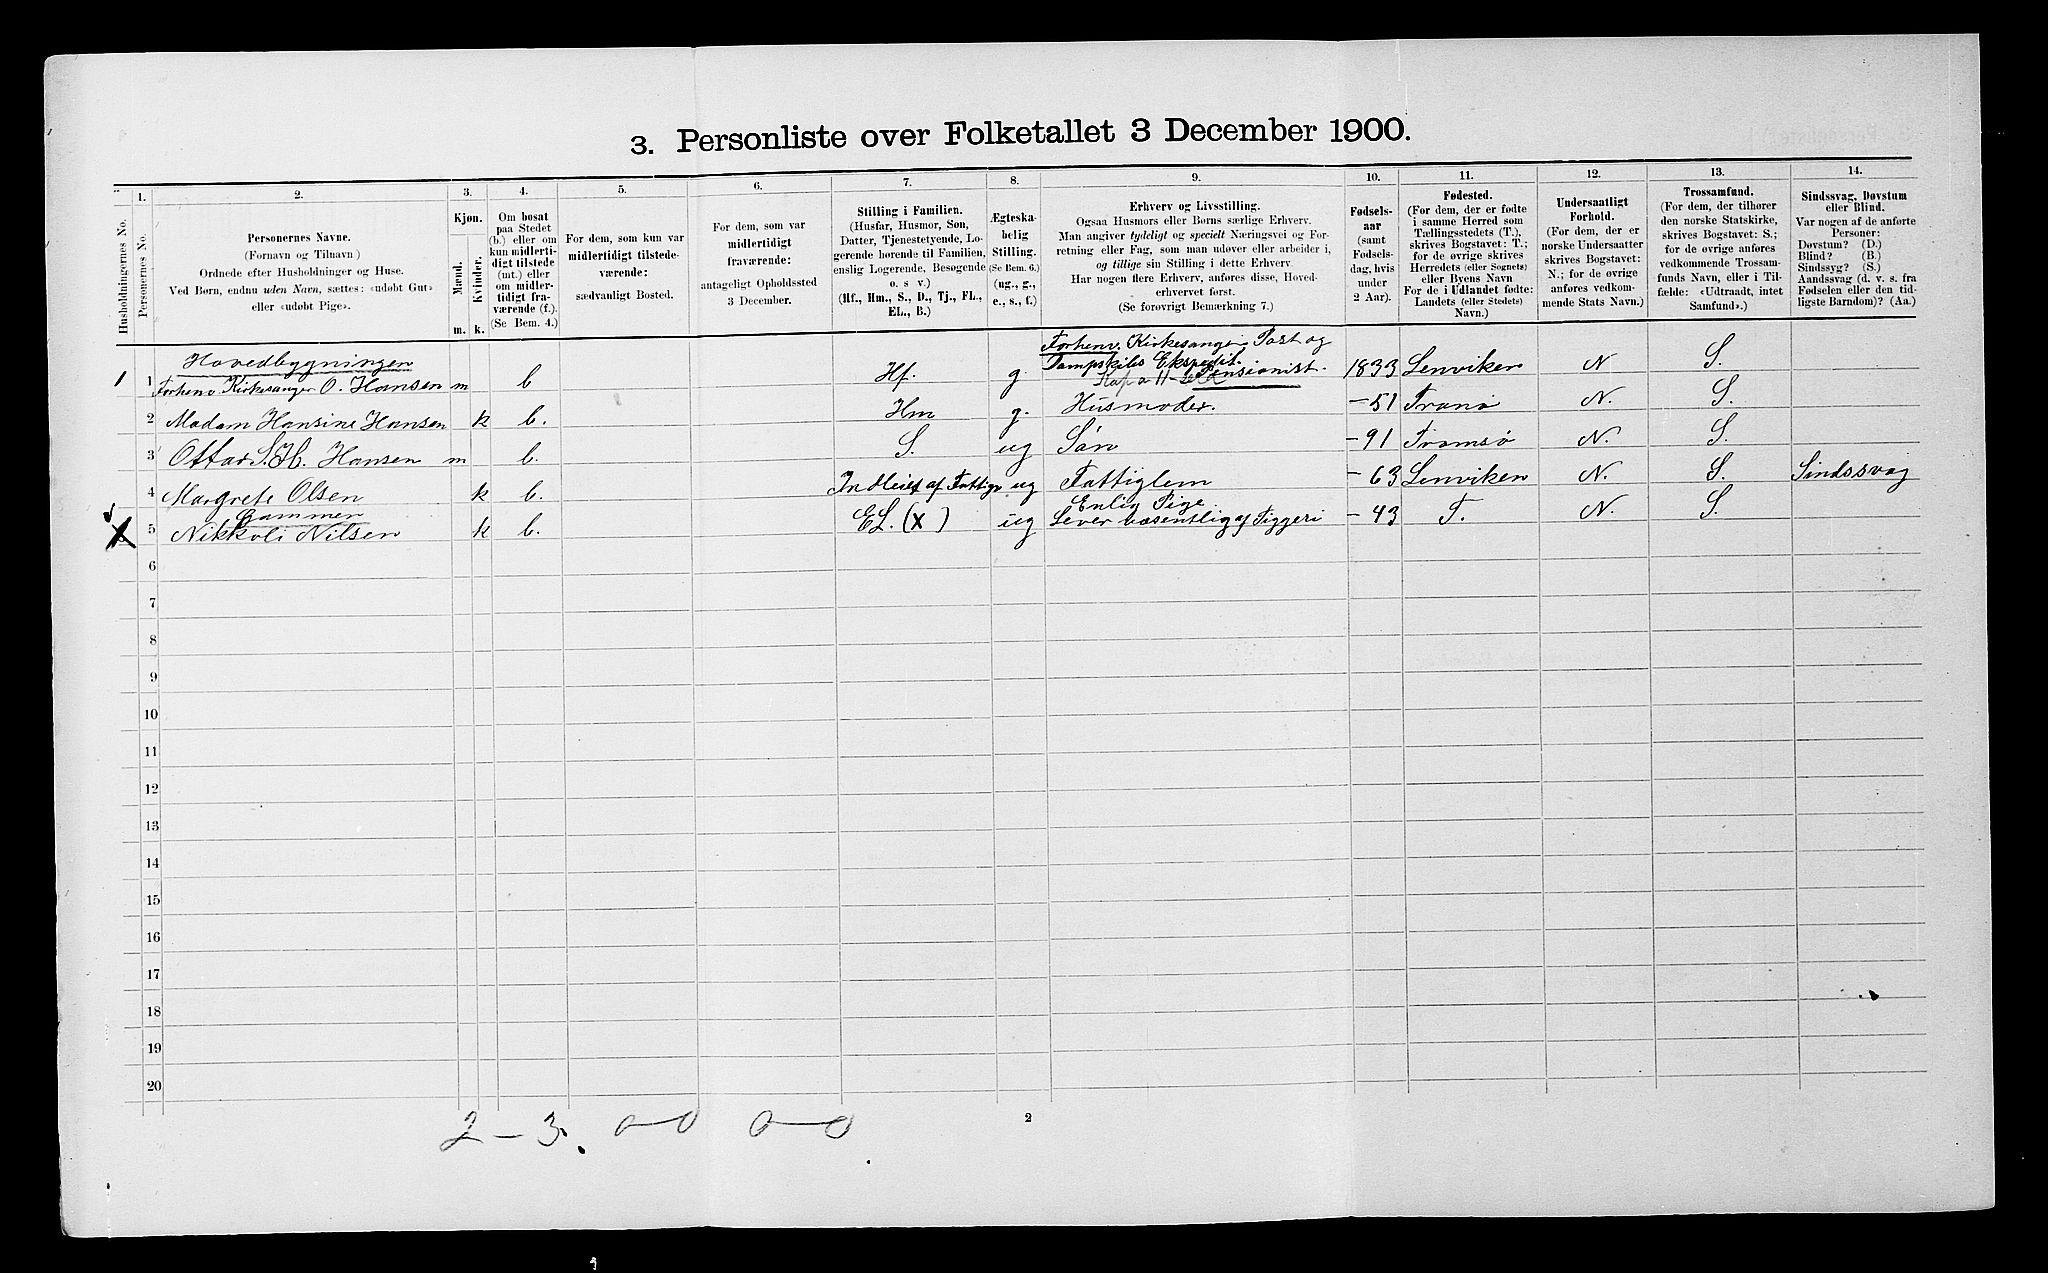 3. Personliste over Folketallet 3 December 1900.
Husholdningernes No.
1.
Personernes No.
2.
Personernes Navne.
(Fornavn og Tilnavn)
Ordnede efter Husholdninger og Huse.
Ved Børn, endnu uden Navn, sættes: «udøbt Gut»
eller «udøbt Pige».
3.
Kjøn.
Mænd.
Kvinder.
m. k.
4.
Om bosat
paa Stedet
(b.) eller om
kun midlerti-
digt tilstede
(mt.) eller
om midler-
tidigt fra-
værende (f.).
(Se Bem. 4.)
5.
For dem, som kun var
midlertidigt tilstede-
værende:
sædvanligt Bosted.
6.
For dem, som var
midlertidigt
fraværende:
antageligt Opholdssted
3 December.
7.
Stilling i Familien.
(Husfar, Husmor, Søn,
Datter, Tjenestetyende, Lo-
gerende hørende til Familien,
enslig Logerende, Besøgende
o. s v.)
(Hf., Hm., S., D., Tj., FL.,
EL., B.)
8.
Ægteska-
belig
Stilling.
(Se Bem. 6.)
(ug., g.,
e., s., f.)
9.
Erhverv og Livsstilling.
Ogsaa Husmors eller Børns særlige Erhverv.
Man angiver tydeligt og specielt Næringsvei og For-
retning eller Fag, som man udøver eller arbeider i,
og tillige sin Stilling i dette Erhverv.
Har nogen flere Erhverv, anføres disse, Hoved-
erhvervet først.
(Se forøvrigt Bemærkning 7.)
10.
Fødsels-
aar
(samt
Fødsels-
dag, hvis
under
2 Aar).
11.
Fødested.
(For dem, der er fødte
i samme Herred som
Tællingsstedets (T.),
skrives Bogstavet: T.;
for de øvrige skrives
Herredets (eller Sognets)
eller Byens Navn
For de i Udlandet fødte:
Landets (eller Stedets)
Navn.)
12.
Undersaatligt
Forhold.
(For dem, der er
norske Undersaatter
skrives Bogstavet:
N.; for de øvrige
anføres vedkom-
mende Stats Navn.)
13.
Trossamfund.
(For dem, der tilhører
den norske Statskirke,
skrives Bogstavet: S.;
for de øvrige anføres
vedkommende Trossam-
funds Navn, eller i Til-
fælde: «Udtraadt, intet
Samfund».)
14.
Sindssvag, Døvstum
eller Blind.
Var nogen af de anførte
Personer:
Døvstum? (D.)
Blind? (B.)
Sindssyg? (S.)
Aandssvag (d. v. s. fra
Fødselen eller den tid-
ligste Barndom)? (Aa.)
Hovedbygningen
Forhenv. Kirkesanger Post og
Dampskibs Ekspedit.
1 1 Forhenv Kirkesanger O. Hansen m b Hf. g. Pensionist. 1833 Lenviken N S.
2 Madam Hansine Hansen k b. Hm g. Husmoder. -51 Tranø N. S.
3 Ottar S. H. Hansen m b. S. ug Søn -91 Tromsø N. S.
4 Margrete Olsen k b. Indleiet af Fattigv ug Fattiglem -63 Lenviken N. S. Sindssvag
Gammen Enlig Pige
5 Nikkoli Nilsen k b. EL. (X) ug Lever væsentlig af Tiggeri -43 T. N. S.
6
7
8
9
10
11
12
13
14
15
16
17
18
19
20
2-3. 0-0 0-0
2